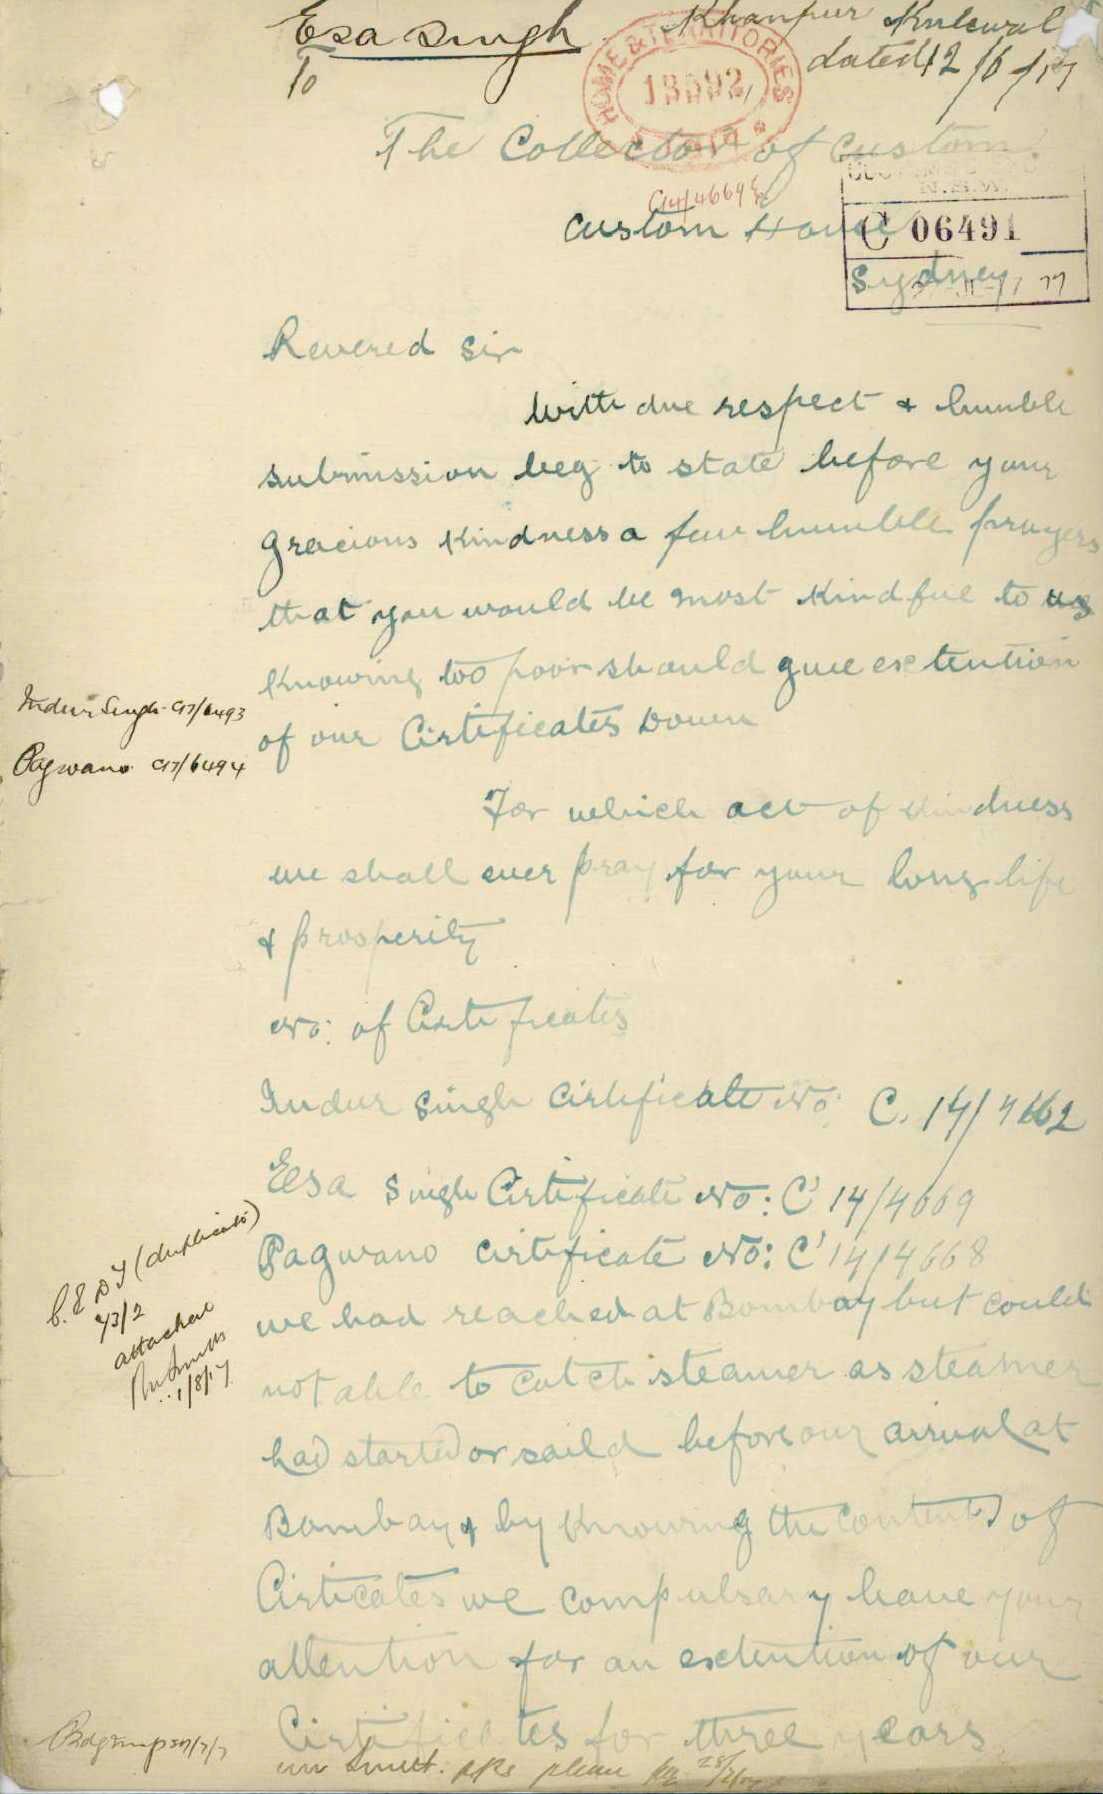 Esa Singh
Khanpur
dated 12/6/17
To
HOME & TERRITORIES
The Collector of Custom
N.S.W.
C14/4669
Custom House
C 06491
Sydney
Revered Sir
With due respect & humble
submission beg to state before your
gracious kindness a few humble prayers
that you would be most kindful to us
knowing too poor should give extention
of our Cirtificates Down
Indur Singh C17/6493
Pagwano C17/6494
For which act of kindness
we shall ever pray for your long life
& prosperity
No: of Cirtificates
Indur Singh Cirtificate No: C. 14/4662
Esa Singh Cirtificate No: C' 14/4669
Pagwano Cirtificate No: C' 14/4668
(duplicate)
attached
1/8/17
we had reached at Bombay but could
not able to catch steamer as steamer
had started or saild before our arrival at
Bombay & by knowing the contents of
Cirticates we compulsary have your
attention for an extention of our
Cirtificates for three years
please